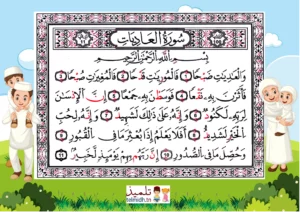 سُورَةُ الْعَادِيَاتِ
بِسْمِ اللَّهِ الرَّحْمَٰنِ الرَّحِيمِ
وَالْعَادِيَاتِ ضَبْحًا ۝١ فَالْمُورِيَاتِ قَدْحًا ۝٢ فَالْمُغِيرَاتِ صُبْحًا ۝٣
فَأَثَرْنَ بِهِ نَقْعًا ۝٤ فَوَسَطْنَ بِهِ جَمْعًا ۝٥ إِنَّ الْإِنْسَانَ
لِرَبِّهِ لَكَنُودٌ ۝٦ وَإِنَّهُ عَلَى ذَلِكَ لَشَهِيدٌ ۝٧ وَإِنَّهُ لِحُبِّ
الْخَيْرِ لَشَدِيدٌ ۝٨ أَفَلَا يَعْلَمُ إِذَا بُعْثِرَ مَا فِي الْقُبُورِ ۝٩
وَحُصِّلَ مَا فِي الصُّدُورِ ۝١٠ إِنَّ رَبَّهُمْ بِهِمْ يَوْمَئِذٍ لَخَبِيرٌ ۝١١
تلميذ
telmidh.tn